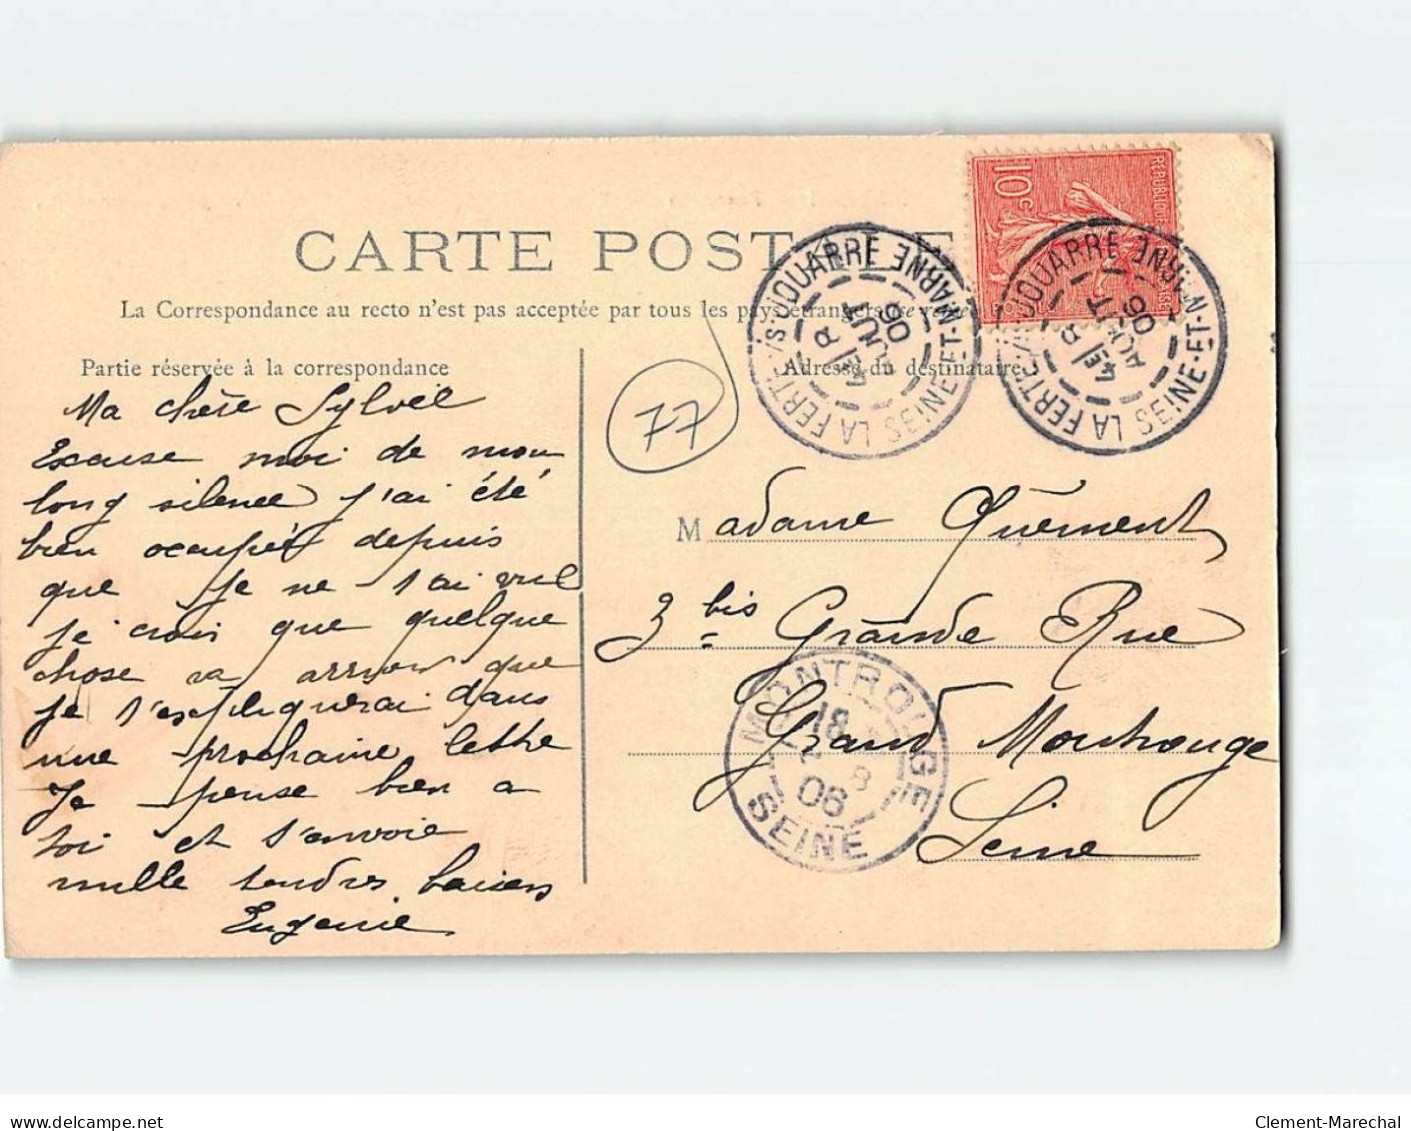 CARTE POSTALE
La Correspondance au recto n'est pas acceptée par tous les pays étrangers (se
Partie réservée à la correspondance
Adresse du destinataire
Ma chère Sylvie
Excuse moi de mon
long silence j'ai été
bien occupée depuis
que je ne t'ai vue
je crois que quelque
chose va arriver que
je t'expliquerai dans
une prochaine lettre
Je pense bien a
toi et t'envoie
mille tendres baisers
Eugenie
77
10c
LA FERTE-S/S-JOUARRE SEINE-ET-MARNE
AOUT
06
LA FERTE-S/S-JOUARRE SEINE-ET-MARNE
AOUT
06
Madame Quément
3 bis Grande Rue
Grand Montrouge
Seine
MONTROUGE
18
8
06
SEINE
delcampe.net
Clement-Marechal